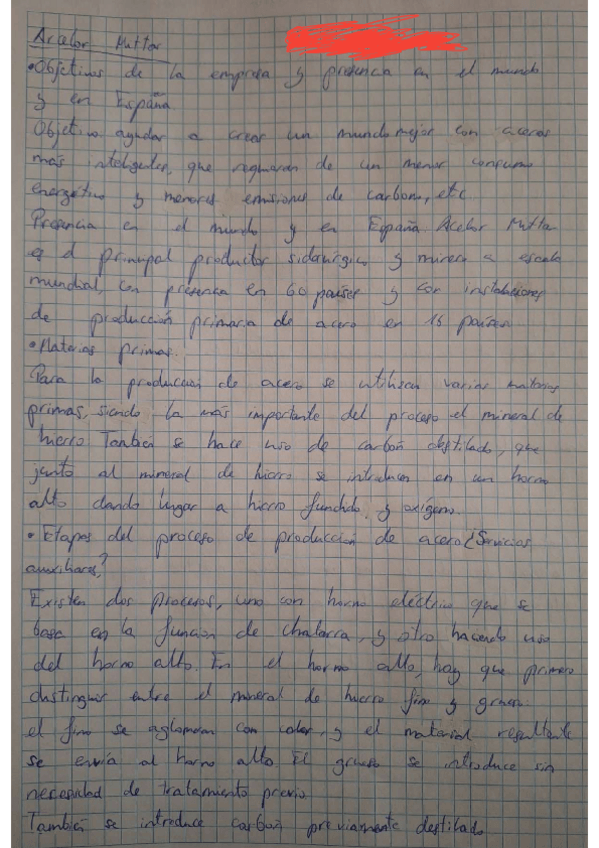 Acelor Mittar
•Objetivos de la empresa y presencia en el mundo
y en España.
Objetivo ayudar a crear un mundo mejor con aceros
más inteligentes, que requieran de un menor consumo
energético y menores emisiones de carbono, etc
Presencia en el mundo y en España Acelor Mittar
es el principal productor siderúrgico y minero a escala
mundial, con presencia en 60 países y con instalaciones
de producción primaria de acero en 18 países.
•Materias primas.
Para la producción de acero se utilizan varias materias
primas, siendo la más importante del proceso el mineral de
hierro. También se hace uso de carbón destilado, que
junto al mineral de hierro se introducen en un horno
alto dando lugar a hierro fundido, y oxígeno.
•Etapas del proceso de producción de acero ¿Servicios
auxiliares?
Existen dos procesos, uno con horno eléctrico que se
basa en la función de chatarra, y otro haciendo uso
del horno alto. En el horno alto, hay que primero
distinguir entre el mineral de hierro fino y grueso.
el fino se aglomeran con calor, y el material resultante
se envía al horno alto. El grueso se introduce sin
necesidad de tratamiento previo.
También se introduce carbón previamente destilado